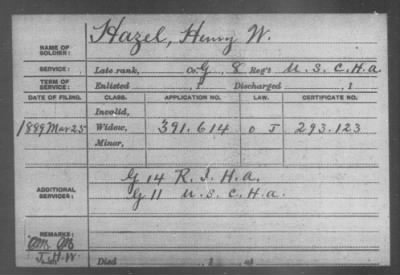 NAME OF SOLDIER: Hazel, Henry W.
SERVICE: Late rank, Co. G, 8 Reg't U. S. C. H. A.
TERM OF SERVICE: Enlisted , 1 Discharged , 1
DATE OF FILING. CLASS. APPLICATION NO. LAW. CERTIFICATE NO.
Invalid,
1889 Mar 25 Widow, 391.614 O J 293.123
Minor,
ADDITIONAL SERVICES: G 14 R. I. H. A.
G 11 U. S. C. H. A.
REMARKS:
J. H. W. Died , 1 at